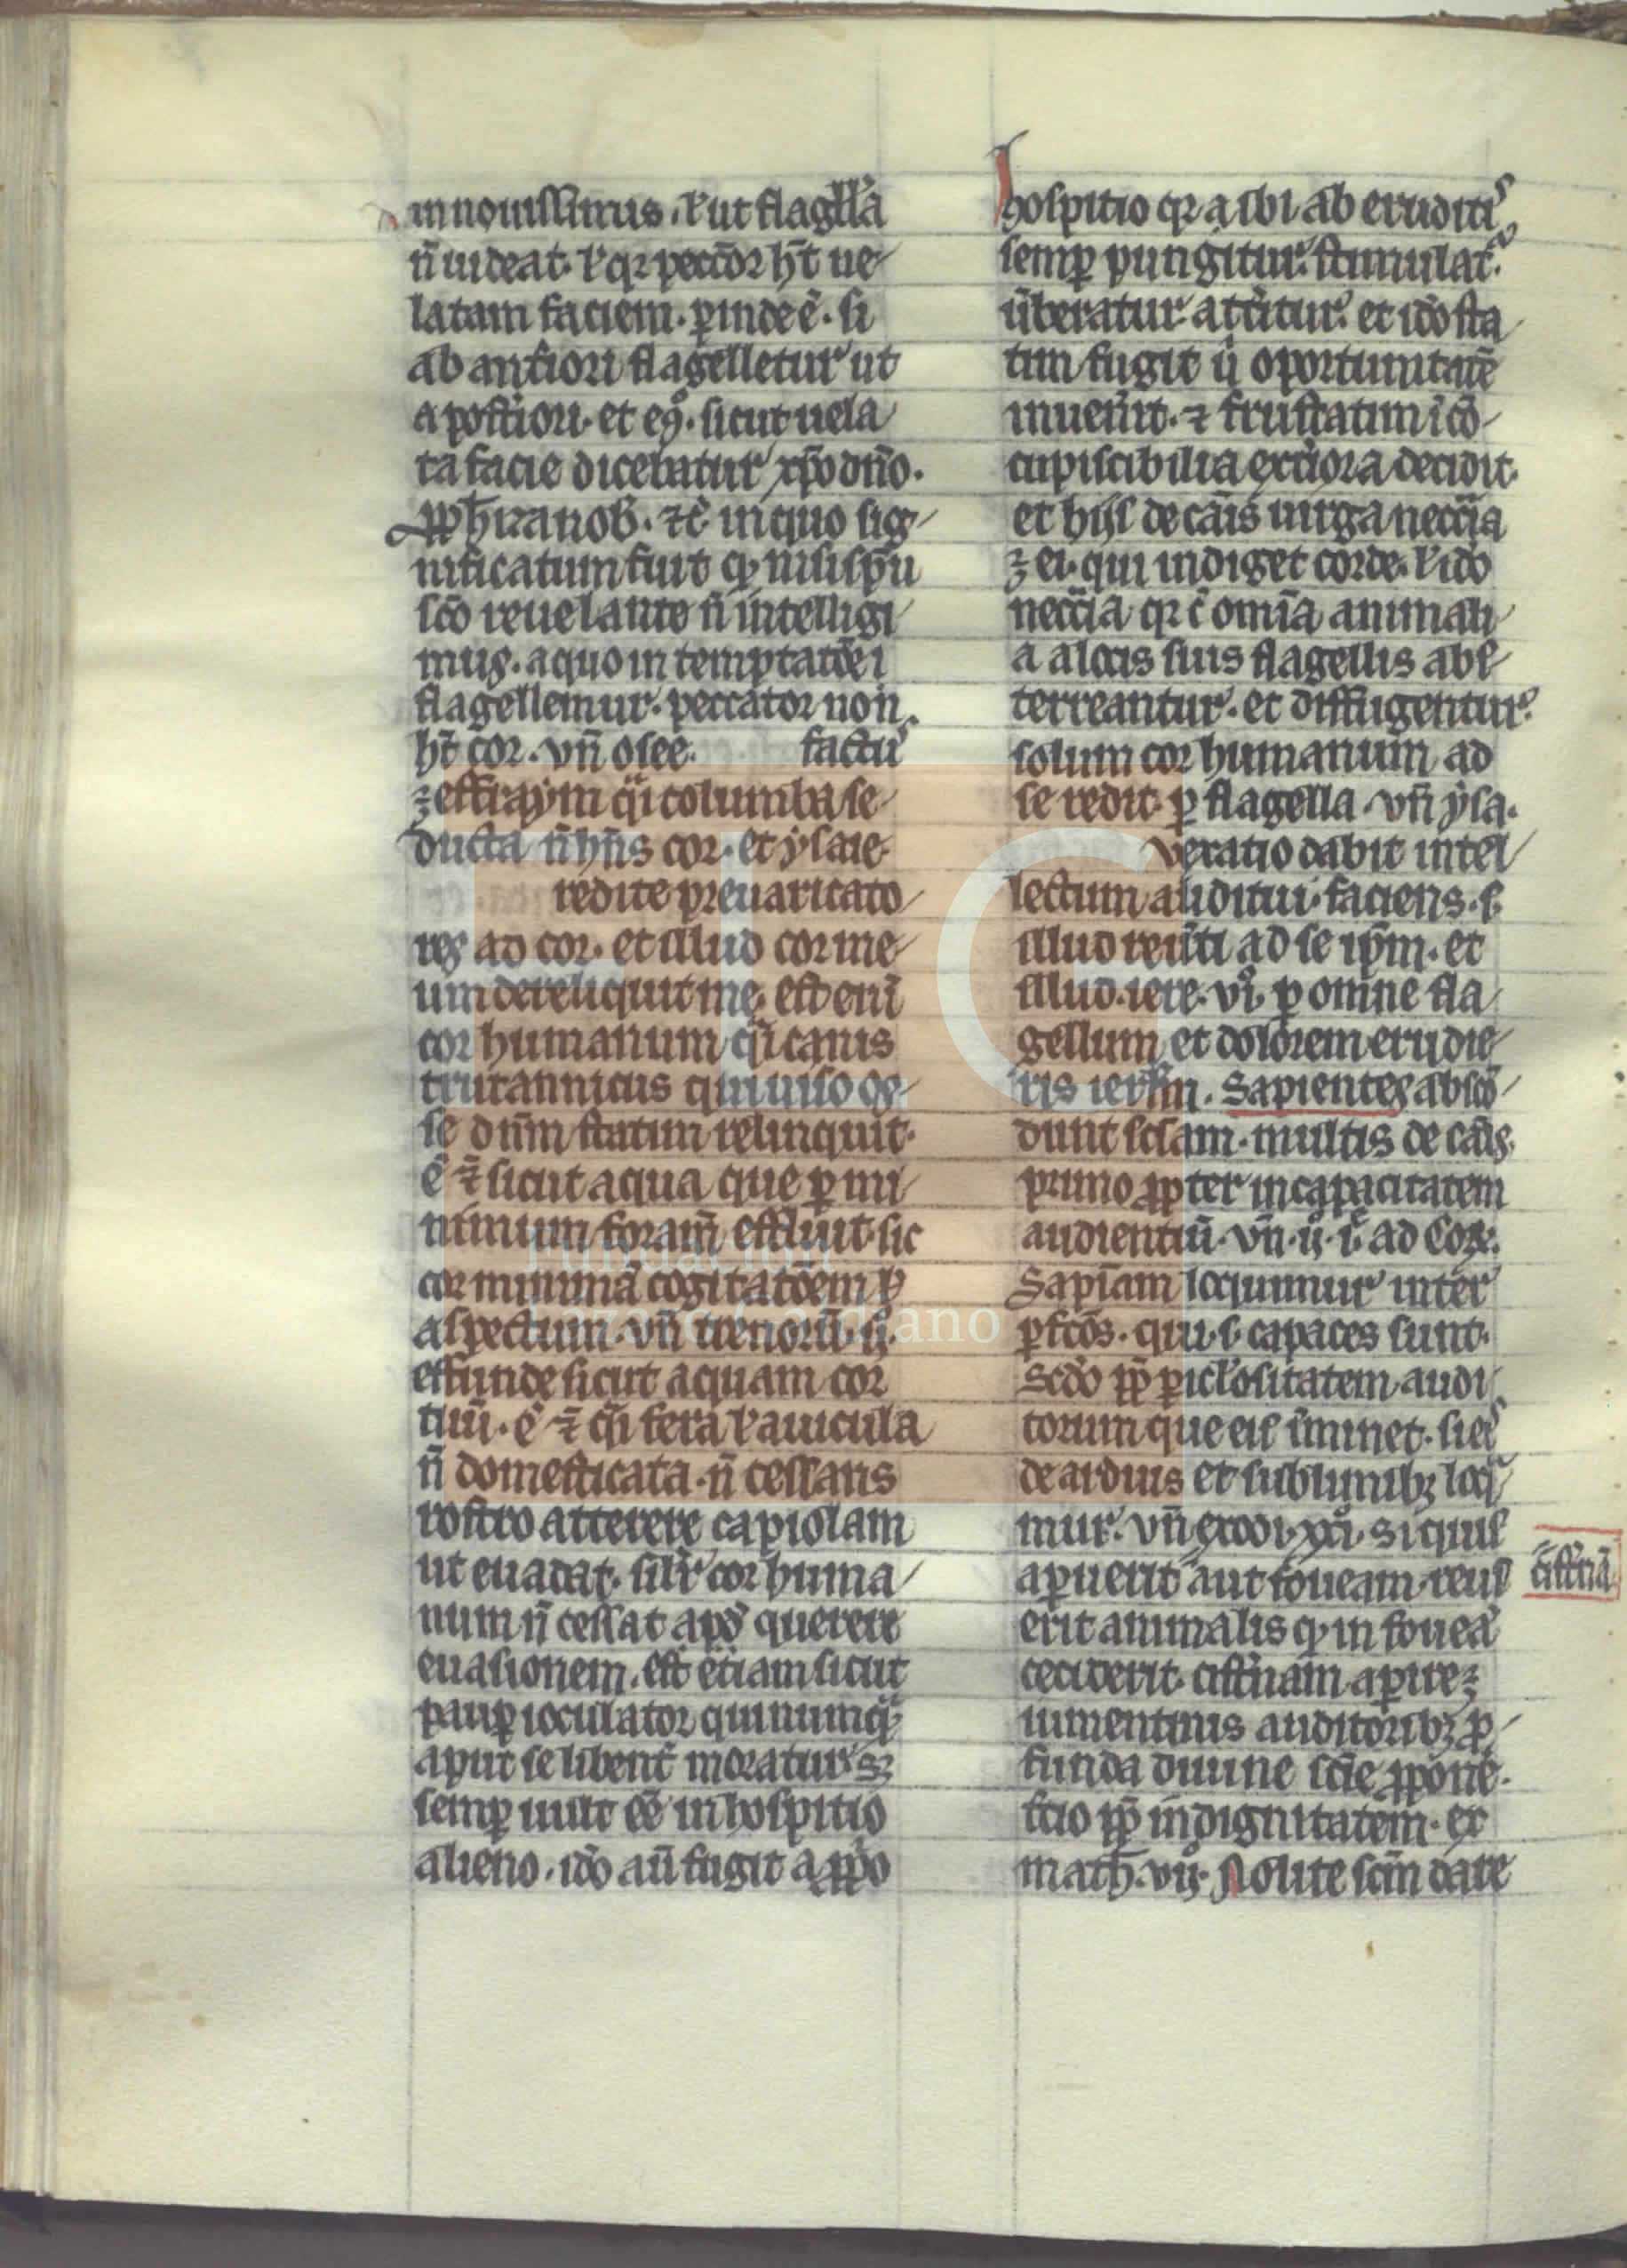 in nouissimis. ł ut flagella
n̄ uideat. ł qr peccōr hȳt ue
latam faciem. ꝑinde ē. si
ab anteriori flagelletur ut
a posteriori. et eꝯ. sicut uela
ta facie dicebatur xp̄o dn̄o.
ꝓph̄iza nob̄. ⁊c̄. in quo sig
nificatum fuit ꝙ nisi sp̄u
sc̄o reuelante n̄ intelligi
mus. a quo in temptatōe
flagellemur. peccator non
hȳt cor. vn̄ osee. factū
ꝫ effraym q̄i columba se
ducta n̄ hn̄s cor. et ysaie.
redite preuaricato
res ad cor. et illud cor me
um dereliquit me. est enī
cor humanum q̄i canis
trutannicus qui uiso os
se dn̄m statim relinquit.
ē ⁊ sicut aqua que ꝑ mi
nimum foramē effluit. sic
cor minimā cogitatōem ł
aspectum. vn̄ trenorū. ij.
effunde sicut aquam cor
tuū. ē ⁊ q̄i fera ł auicula
n̄ domesticata. n̄ cessans
rostro atterere capiolam
ut euadat. silr̄ cor huma
num n̄ cessat apd̄ querere
euasionem. est etiam sicut
paup̱ ioculator qui numq̄
aput se libent̄ moratur sꝫ
semꝑ uult ēē in hospitio
alieno. idō aū fugit a ꝓp̄o
hospitio qr a sibi ab eruditis
semꝑ pungitur. stimulat̄.
ūberatur att̄itur. et idō sta
tim fugit ú oportunitatē
inuen̄it. ⁊ frustatim i cō
cupiscibilia ext̄iora decidit.
et hijs de cāis uirga necc̄ia
ꝫ ei. qui indiget corde. ł idō
necc̄ia qr c̄ om̄ia animali
a a locis suis flagellis abs
terreantur. et diffugentur.
solum cor humanum ad
se redit ꝑ flagella. vn̄ ysa.
vexatio dabit intel
lectum auditui. faciens. s.
illud reūti ad se ip̄m. et
illud. iere. vi. ꝑ omne fla
gellum et dolorem erudie
ris ierlm̄. Sapientes absco
dunt sciām. multis de cāis.
primo ꝓpter incapacitatem
audientiū. vn̄. ij. i. ad Coꝝ.
Sapiām loquimur inter
ꝑfc̄os. qui. s. capaces sunt.
Scdo ꝓp̄ ꝑic̄lositatem audi
torum que eis īminet. si eis
de arduis et sublimibꝫ loq̄
mur. vn̄ exodi. xxi. si quis
aꝑuerit aut foueam. reus
cist̄nā
erit animalis ꝙ in foueā
ceciderit. cist̄nam aꝑire ꝫ
iumentinis auditoribꝫ ꝓ
funda diuine scīe ꝓponē.
t̄cio ꝓp̄ indignitatem. et
math̄. vij. Nolite scm̄ dare
Fundación
Lázaro Galdiano